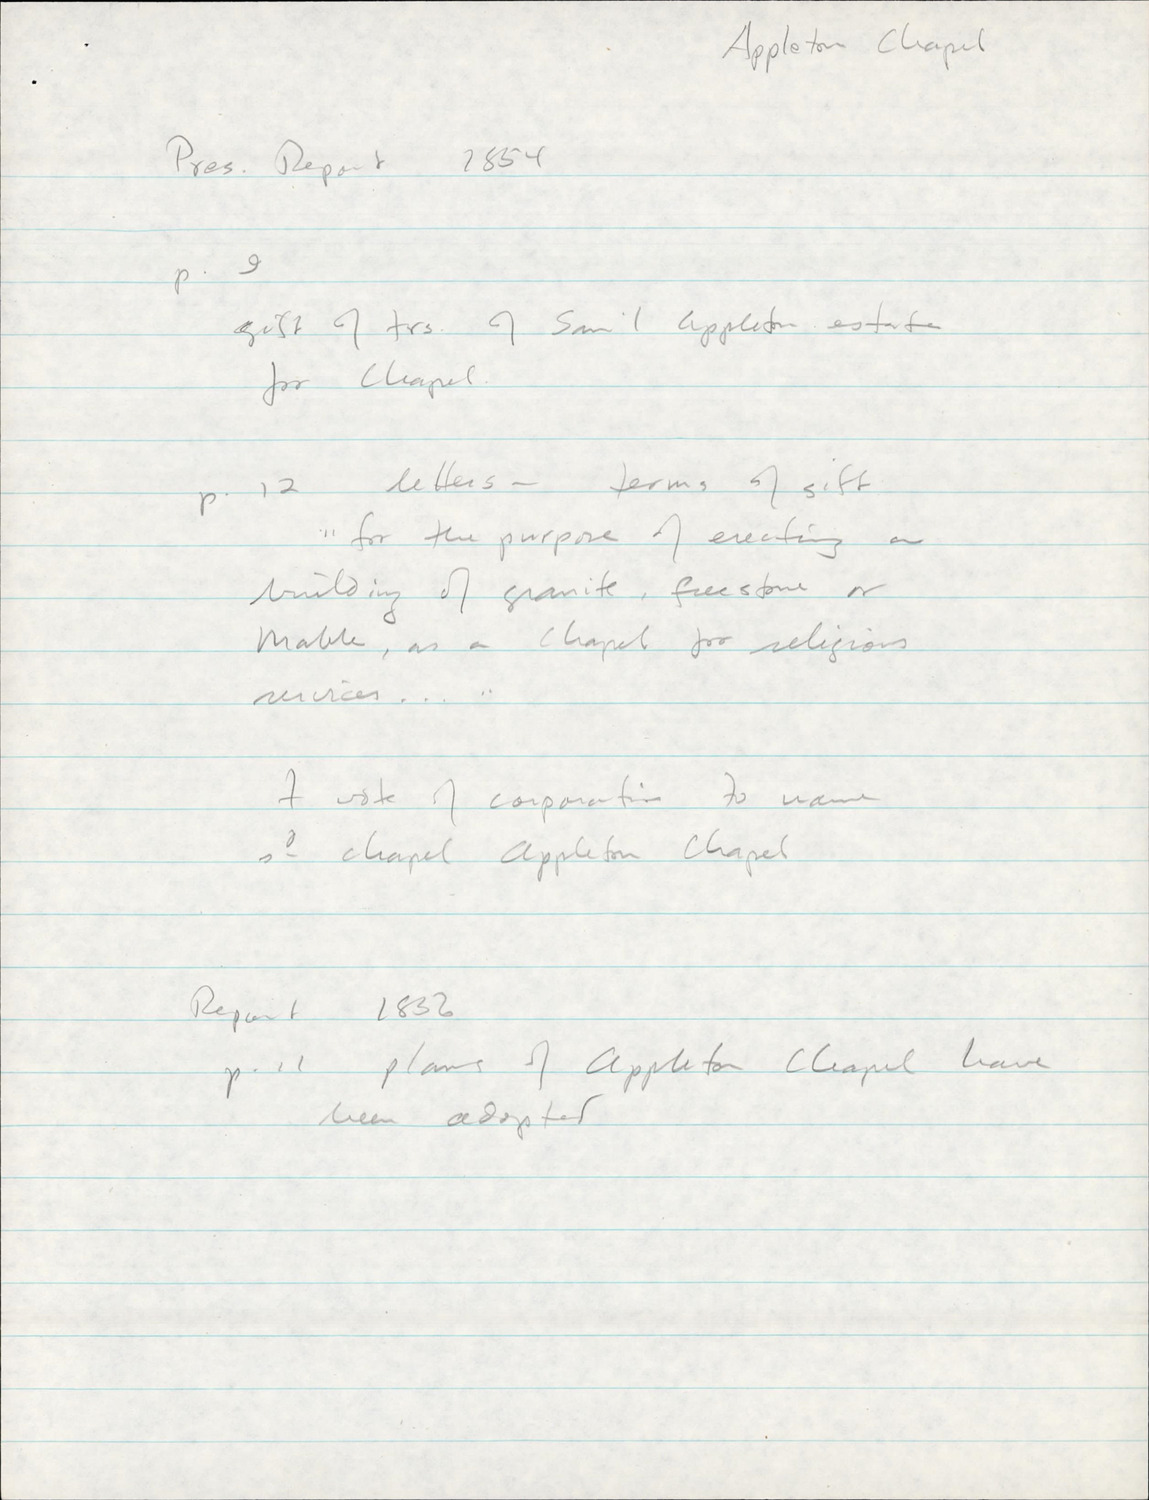 Appleton Chapel
Pres. Report 1854
p. 9
gift of trs. of Sam'l Appleton estate
for Chapel.
p. 12 letters - terms of gift
"for the purpose of erecting a
building of granite, freestone or
Marble, as a Chapel for religious
services... "
& vote of corporation to name
sd chapel Appleton Chapel
Report 1856
p. 11 plans of Appleton Chapel have
been adopted